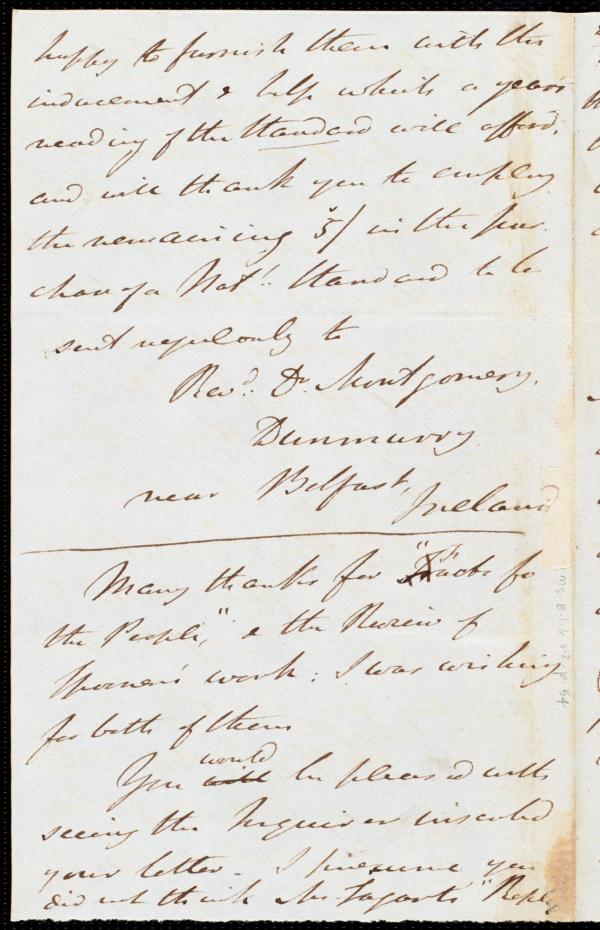 happy to furnish them with the
inducement & help which a year's
reading of the Standard will afford,
and will thank you to employ
the remaining 5/ in the pur-
chase of a Nat'l Standard to be
sent regularly to
Revd. Dr. Montgomery,
Dunmurry
near Belfast,
Ireland
Many thanks for "Facts for
the People," & the Review of
Spooner's work: I was wishing
for both of them
You will would be pleased with
seeing the Inquirer inserted
your letter - I presume you
did not think Mr Tagart's "Reply
MS. B.1.6 v.2, p. 64